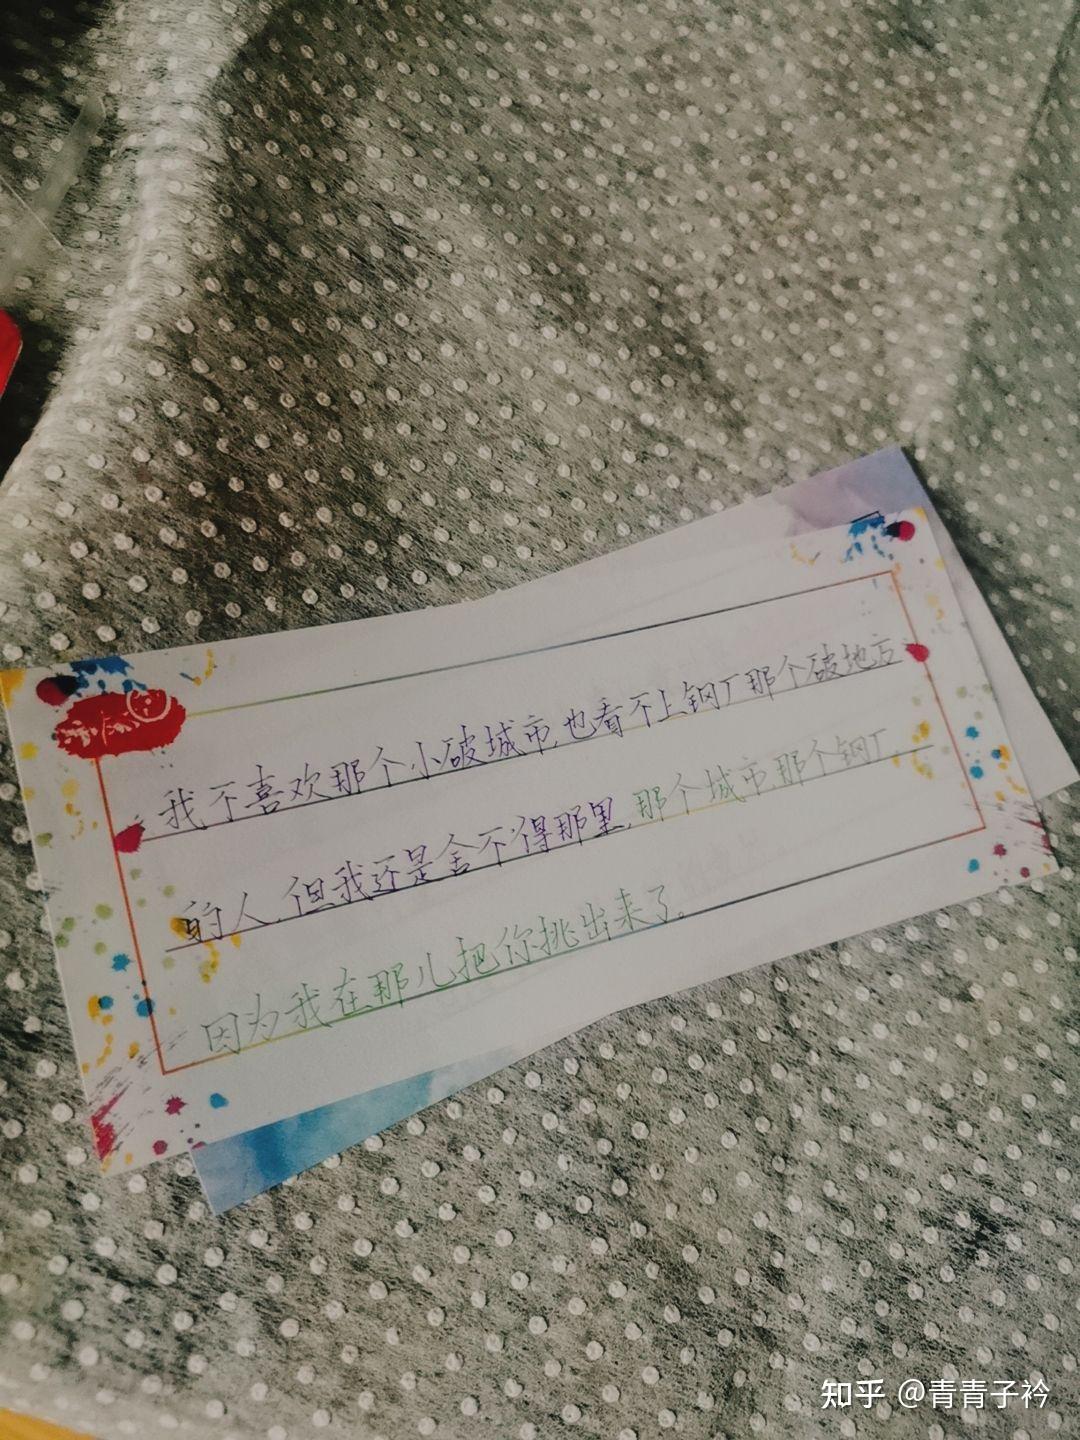 我不喜欢那个小破城市,也看不上钢厂那个破地方
的人,但我还是舍不得那里,那个城市,那个钢厂,
因为我在那儿把你挑出来了。
知乎 @青青子衿